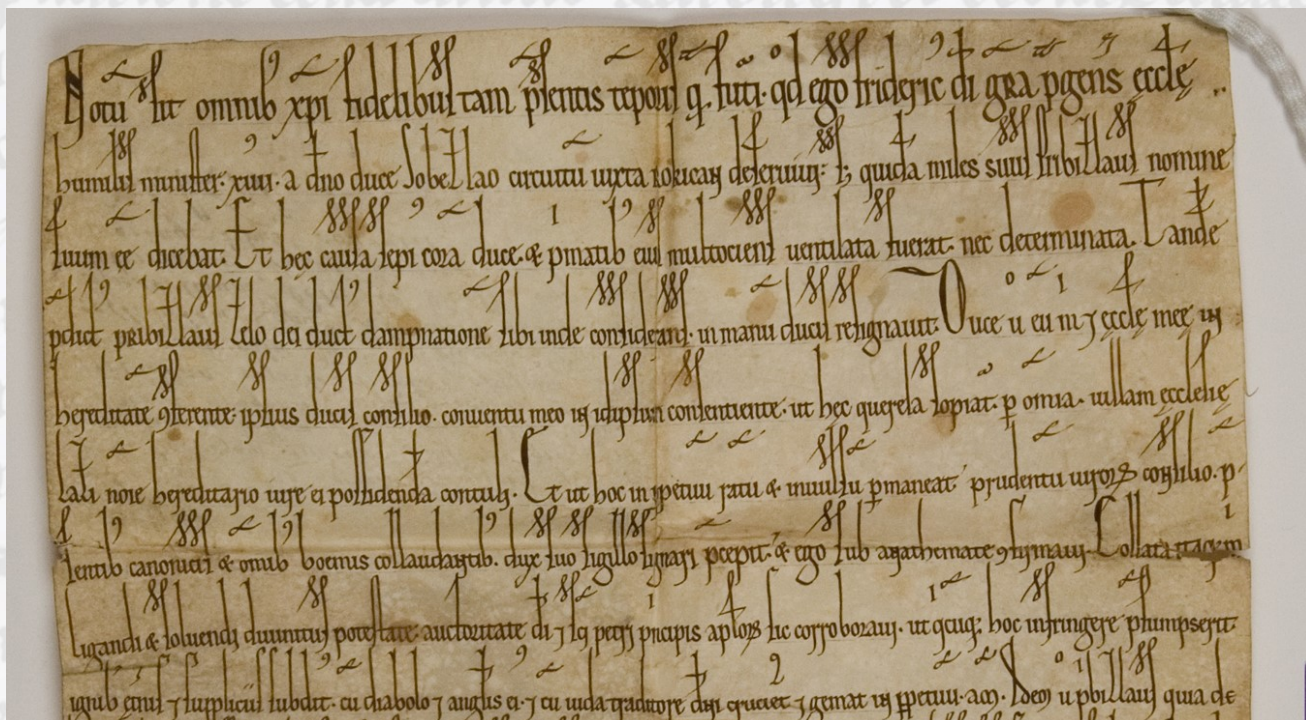 Notū sit omnib xpi fidelibus tam psentis tēporis q̄. futi. qd ego frideric di gra pgens ecclę
humilis minister. xiiii. a dno duce Sobezlao circuitū iuxta rokican deserviu: s; quidā miles suus pribizlaus nomine
suum ee dicebat. Et hec causa sepi corā duce. & pmatib eius multociens ventilata fuerat. nec determinata. Tandē
pdict pribizlaus zelo dei duct dampnationē sibi inde considerans. in manū ducis resignavit. Dux ū eū m 7 ęcclę meę in
hereditatē 9ferente. ipsius ducis consilio. conventu meo in idipsum consentiente. ut hęc querela sopiat. p omia. villam ęcclesię
tali noīe hereditario iure ei possidendā contuli. Et ut hoc in ppetuū ratū & inuulsū pmaneat prudentū uiroꝝ consilio. p
sentib canonicis & omib boemis collaudantib. dux suo sigillo signari pcepit. & ego sub anathemate 9firmavi. Collata itaq
ligandi & solvendi divinitus potestate. auctoritate di 7 sci petri principis aploꝝ sic corroboravi. ut qcuq; hoc infringere psumpserit
ignib 7 suppliciis subdit. cū diabolo 7 anglis ei. 7 cū iuda traditore dni cruciet 7 gemat in ppetuū. am. Dem ū pbizlaus quia de